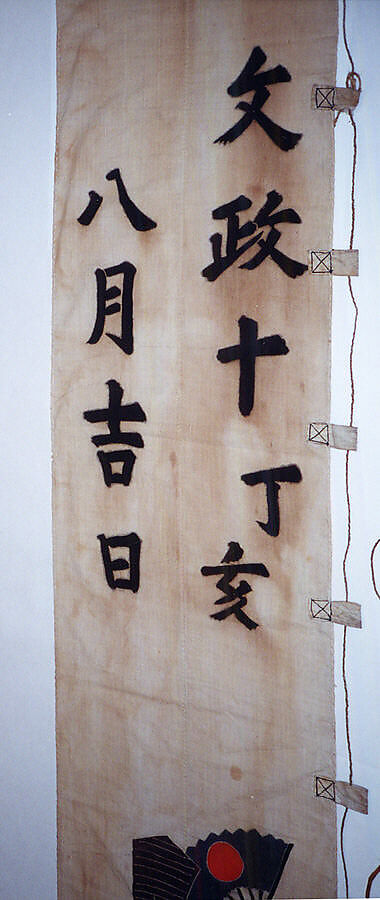 文政十丁亥
八月吉日